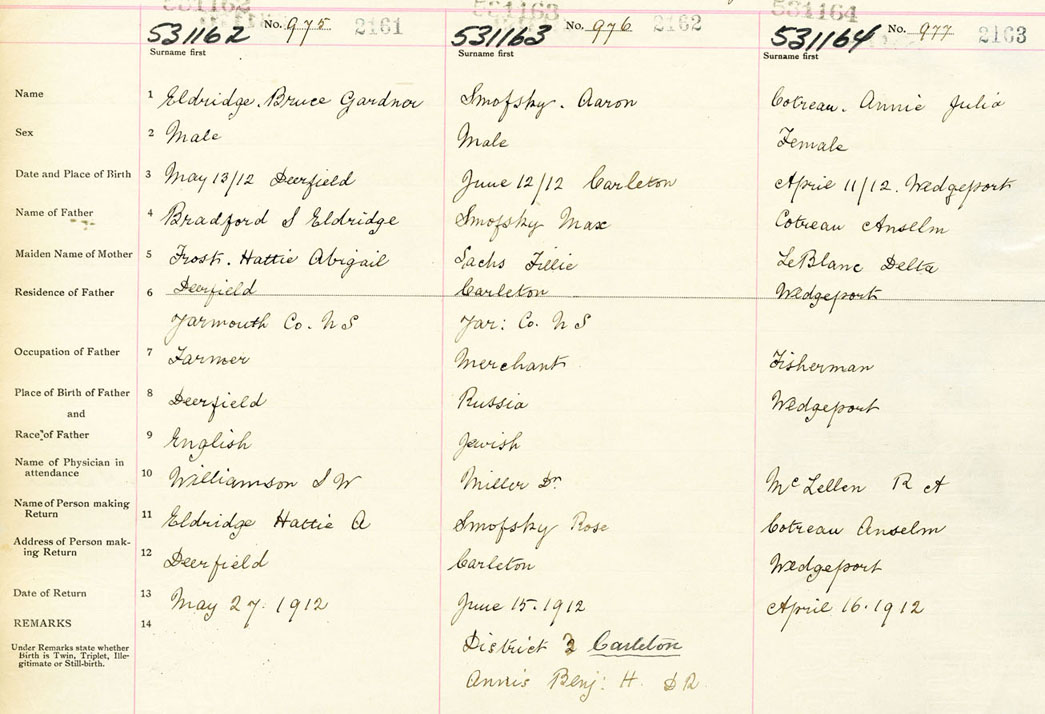 531162 531163 531164
531162 No. 975 2161 531163 No. 976 2162 531164 No. 977 2163
Surname first Surname first Surname first
Name 1 Eldridge. Bruce Gardnor Smofsky. Aaron Cotreau. Annie Julia
Sex 2 Male Male Female
Date and Place of Birth 3 May 13/12 Deerfield June 12/12 Carleton April 11/12. Wedgeport
Name of Father 4 Bradford S Eldridge Smofsky Max Cotreau Anselm
Maiden Name of Mother 5 Frost. Hattie Abigail Sachs Tillie LeBlanc Delta
Residence of Father 6 Deerfield Carleton Wedgeport
Yarmouth Co. N S Yar: Co. N S
Occupation of Father 7 Farmer Merchant Fisherman
Place of Birth of Father 8 Deerfield Russia Wedgeport
and
Race of Father 9 English Jewish
Name of Physician in
attendance 10 Williamson S W Miller Dr McLellen R A
Name of Person making
Return 11 Eldridge Hattie A Smofsky Rose Cotreau Anselm
Address of Person mak-
ing Return 12 Deerfield Carleton Wedgeport
Date of Return 13 May 27. 1912 June 15. 1912 April 16. 1912
REMARKS 14
Under Remarks state whether
Birth is Twin, Triplet, Ille-
gitimate or Still-birth.
District 2 Carleton
Annis Benj: H. DR.